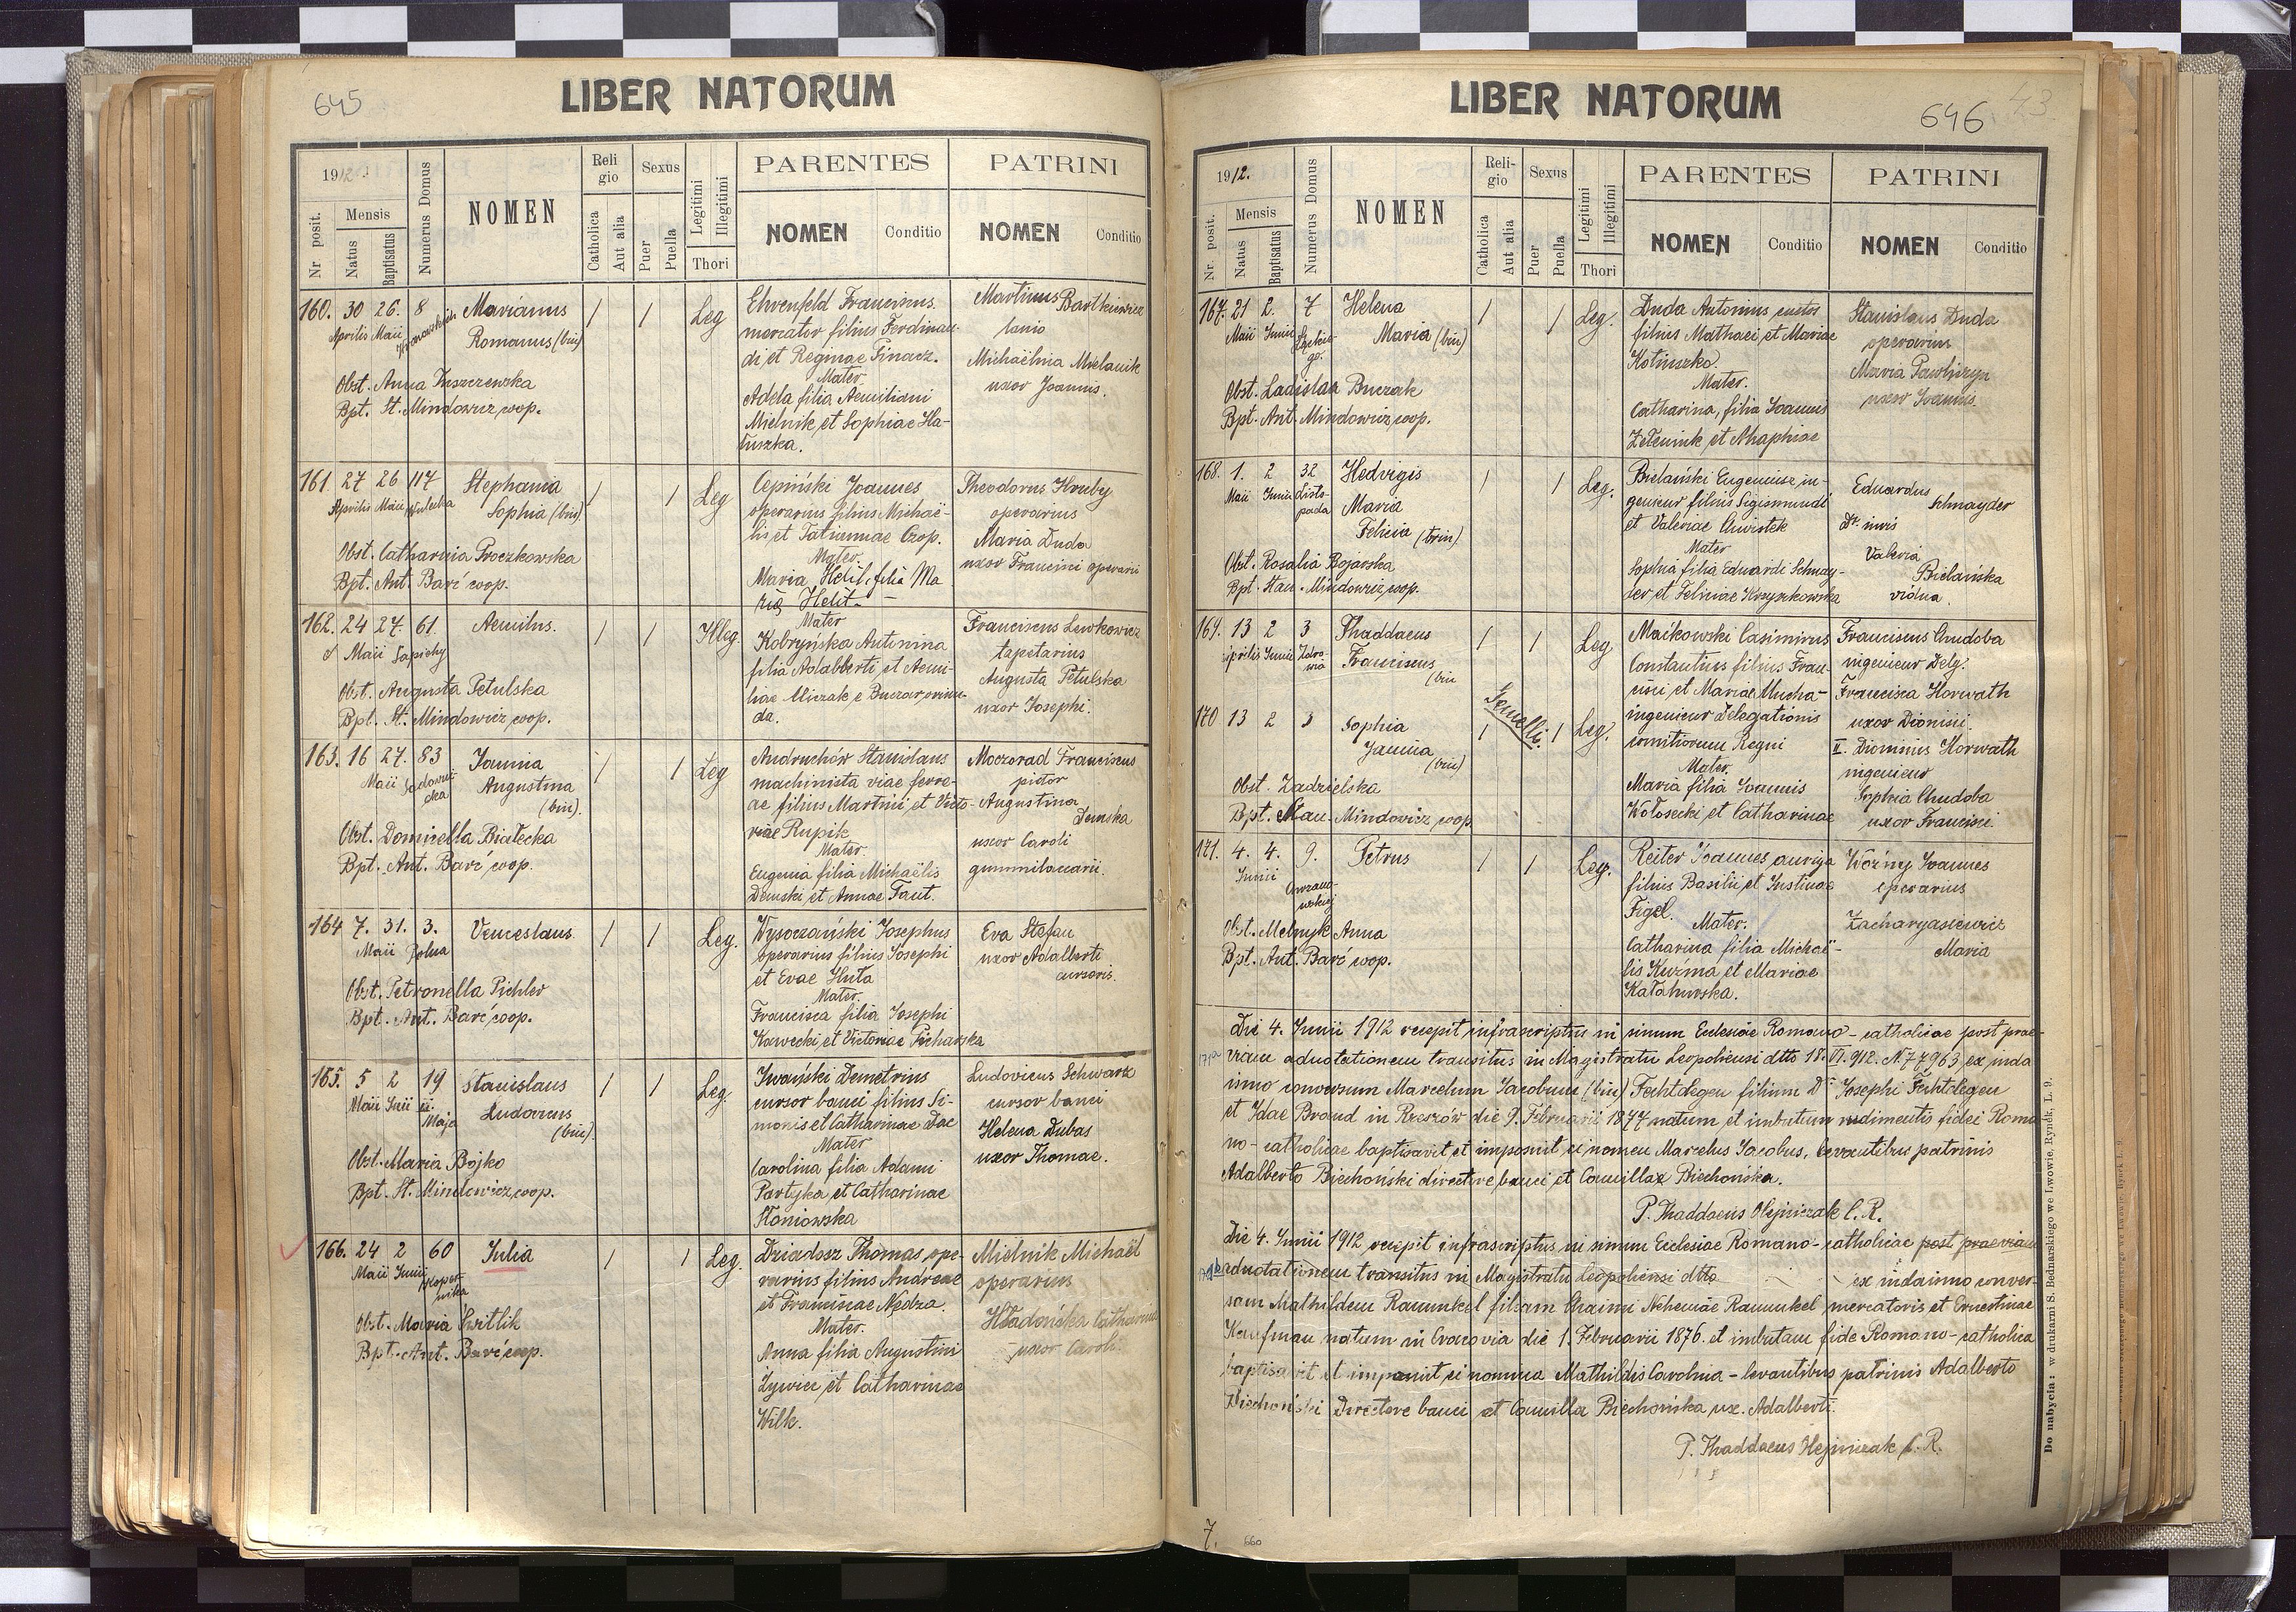 645
LIBER NATORUM
1912.
Nr. posit.
Mensis
Natus
Baptisatus
Numerus Domus
NOMEN
Religio
Catholica
Aut alia
Sexus
Puer
Puella
Legitimi
Illegitimi
Thori
PARENTES
NOMEN
Conditio
PATRINI
NOMEN
Conditio
160. 30 26. 8
Aprilis Maii
Marianus
Romanus (bin)
Leg
Obst. Anna Juszczewska
Bpt. St. Mindowicz, coop.
Ehrenfeld Franciscus
mercator filius Ferdinan-
di et Reginae Pinacz.
Mater
Adela filia Aemiliani
Mielnik, et Sophiae Ha-
luszka.
Martinus Bartkiewicz
lanio
Michaëlina Mielanik
uxor Joannis.
161 27 26 117
Aprilis Maii Wulecka
Stephania
Sophia (bin)
Leg
Obst. Catharina Proczkowska
Bpt. Ant. Barć coop.
Cepiński Joannes
operarius filius Michaë-
lis et Tatiannae Czop.
Mater
Maria Helit, filia Ma
ria Helit
Theodorus Hruby
operarius
Maria Duda
uxor Francisci operarii
162. 24 27. 61.
Maii Sapiehy
Aemilius.
Illeg.
Obst. Augusta Petulska
Bpt. St. Mindowicz, coop.
Mater
Kobryńska Antonina
filia Adalberti et Aemi-
liae Mirzak, e Buczac, oriun-
da.
Franciscus Lewkowicz
tapetarius
Augusta Petulska
uxor Josephi.
163. 16 27. 83
Maii
Janina
Augustina
(bin).
Leg
Obst. Domicella Białecka
Bpt. Ant. Barć coop.
Andruchów Stanislaus
machinista viae ferre-
ae filius Martini et Victo-
riae Rupik
Mater
Eugenia filia Michaëlis
Demski et Annae Faut.
Moczorad Franciscus
pictor
Augustina
Demska
uxor Caroli
164 7. 31. 3.
Maii Polna
Venceslaus
Leg.
Obst. Petronella Pichler
Bpt. Ant. Barć, coop.
Wysoczański Josephus
operarius filius Josephi
et Evae Huta
Mater.
Francisca filia Josephi
Kawecki et Victoriae Picharska
Eva Stefan
uxor Adalberti
cursoris.
165. 5 2 19
Maii Junii
Maja
Stanislaus
Ludovicus
(bin).
Leg.
Obst. Maria Bojko
Bpt. St. Mindowicz, coop.
Iwański Demetrius
cursor banci filius Si-
monis et Catharinae Dac
Mater
Carolina filia Adami
Partyka et Catharinae
Stoniowska
Ludovicus Schwarz
cursor banci
Helena Dubas
uxor Thomae.
166. 24 2 60
Maii Junii Koper-
nika
Julia
Leg.
Obst. Maria Świtlik
Bpt. Ant. Barć coop.
Dziadosz Thomas, ope-
rarius filius Andreae
et Franciscae Nędza.
Mater.
Anna filia Augustini
Żywiec, et Catharinae
Wilk.
Mielnik Michaël
operarius
Catharina
uxor Caroli
646
43
LIBER NATORUM
1912.
Nr. posit.
Mensis
Natus
Baptisatus
Numerus Domus
NOMEN
Religio
Catholica
Aut alia
Sexus
Puer
Puella
Legitimi
Illegitimi
Thori
PARENTES
NOMEN
Conditio
PATRINI
NOMEN
Conditio
167. 21 2. 7
Maii Junii
Helena
Maria (bin)
Leg.
Obst. Ladislaa Buczak
Bpt. Ant. Mindowicz, coop.
Duda Antonius custos
filius Mathaei et Mariae
Kotiuszko.
Mater.
Catharina, filia Joannis
Zeleniuk et Ahaphiae
Stanislaus Duda
operarius
Maria Pawliszyn
uxor Joannis.
168. 1. 2 32
Maii Junii Listo-
pada
Hedvigis
Maria
Felicia (trin)
Leg.
Obst. Rosalia Bojarska
Bpt. Stan. Mindowicz, coop.
Bielański Eugenius in-
genieur filius Sigismundi
et Valeriae Ćwiertek
Mater
Sophia filia Eduardi Schnay-
der, et Feliciae Krzyżkowska
Eduardus
Schnayder
Dr. iuris
Valeria
Bielańska
vidua.
169. 13 2 3
Aprilis Junii Zdro-
wia
Thaddaeus
Franciscus
(bin
Leg
170 13 2 3
Sophia
Janina
(bin)
Gemelli.
Leg.
Obst. Zadzielska
Bpt. Stan. Mindowicz, coop.
Maikowski Casimirus
Constantius filius Fran-
cisci et Mariae Mucha-
ingenieur Delegationis
comitiorum Regni
Mater.
Maria filia Joannis
Wołosecki et Catharinae
Franciscus Chudoba
ingenieur Delg.
Francisca Horwath
uxor Dionisii
II. Dionisius Horwath
ingenieur
Sophia Chudoba
uxor Francisci.
171. 4. 4. 9.
Junii
Petrus
Leg.
Obst. Melnyk Anna
Bpt. Ant. Barć coop.
Reiter Joannes, auriga
filius Basilii et Justinae
Figel.
Mater.
Catharina filia Michaë-
lis Kuźma et Mariae
Kałahurska.
Woźny Joannes
operarius
Zacharyasiewicz
Maria
171a
Die 4. Junii 1912 recepit infrascriptus in sinum Ecclesiae Romano-catholicae post prae-
viam adnotationem transitus in Magistratu Leopoliensi dtto 18. VI. 912. N. 77963, ex juda
ismo conversum Marcelum Jacobum (bin) Fechtdegen filium Dr. Josephi Fechtdegen
et Idae Brand in Rzeszów die 9. Februarii 1877 natum et imbutum rudimentis fidei Roma
no-catholicae baptisavit et imposuit ei nomen Marcelus Jacobus, levantibus patrinis
Adalberto Biechoński directore banci et Camilla Biechońska.
P. Thaddaeus Olejniczak C. R.
171b
Die 4. Junii 1912 recepit infrascriptus in sinum Ecclesiae Romano-catholicae post praeviam
adnotationem transitus in Magistratu Leopoliensi dtto ex iudaismo conver-
sam Mathildem Rammkel filiam Chaimi Nehemiae Rammkel mercatoris et Ernestinae
Kaufman natum in Cracovia die 1. Februarii 1876. et imbutam fide Romano-catholica
baptisavit et imposuit ei nomina Mathildis Carolina - levantibus patrinis Adalberto
Biechoński Directore banci et Camilla Biechońska ux. Adalberti.
P. Thaddaeus Olejniczak C. R.
7.
660
Do nabycia: w drukarni S. Bednarskiego we Lwowie, Rynek, L. 9.